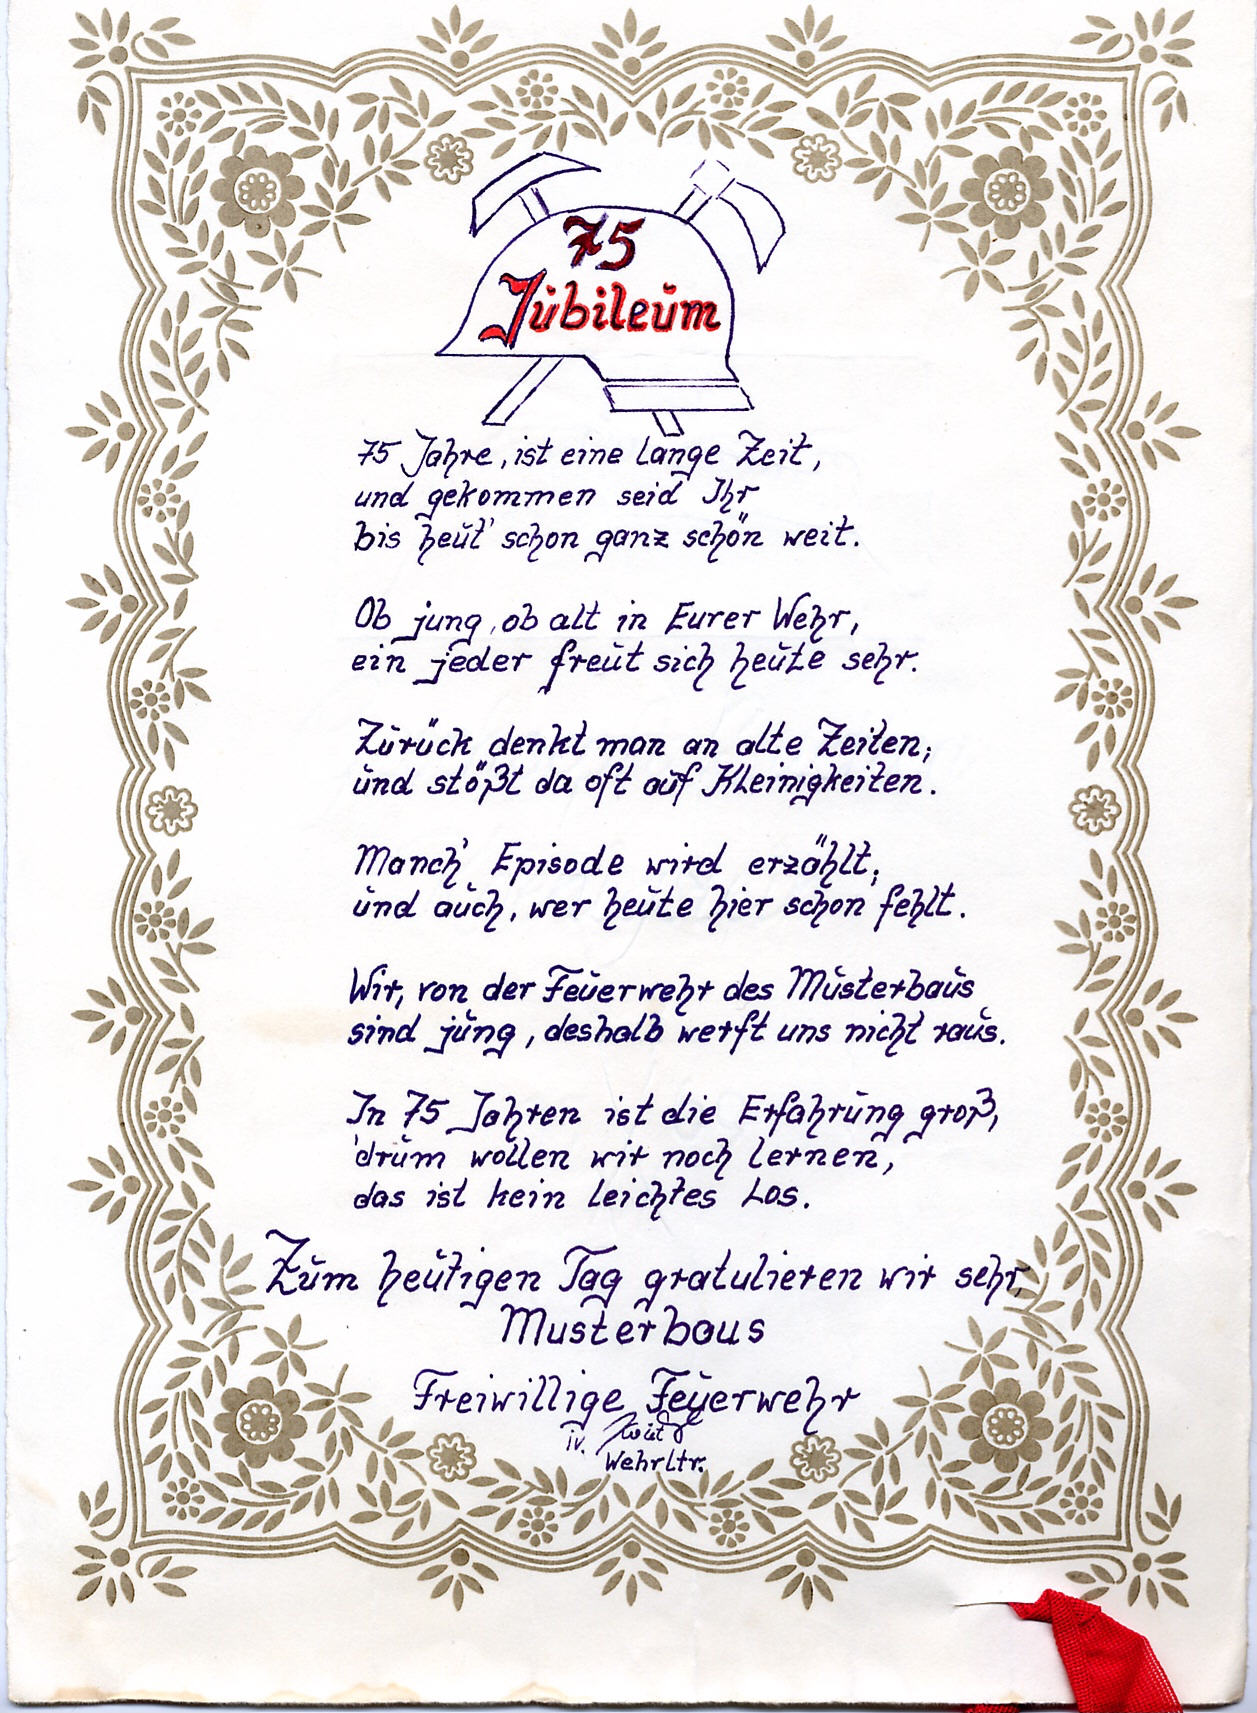 75
Jubileum
75 Jahre, ist eine lange Zeit,
und gekommen seid Ihr
bis heut' schon ganz schön weit.
Ob jung, ob alt in Eurer Wehr,
ein jeder freut sich heute sehr.
Zurück denkt man an alte Zeiten;
und stößt da oft auf Kleinigkeiten.
Manch' Episode wird erzählt;
und auch, wer heute hier schon fehlt.
Wir, von der Feuerwehr des Musterbaus
sind jung, deshalb werft uns nicht raus.
In 75 Jahren ist die Erfahrung groß,
'drum wollen wir noch lernen,
das ist kein leichtes Los.
Zum heutigen Tag gratulieren wir sehr,
Musterbaus
Freiwillige Feuerwehr
iv.
Wehrltr.